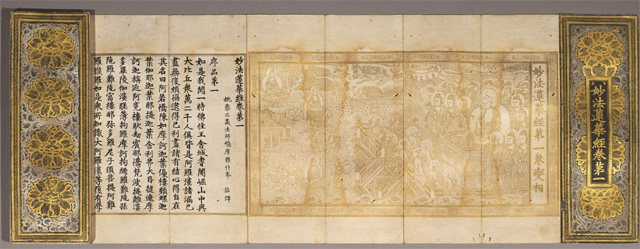 妙法蓮華經卷第一
妙法蓮華經第一卷變相
妙法蓮華經卷第一
姚秦三藏法師鳩摩羅什奉 詔譯
序品第一
如是我聞一時佛住王舍城耆闍崛山中與
大比丘衆萬二千人俱皆是阿羅漢諸漏已
盡無復煩惱逮得己利盡諸有結心得自在
其名曰阿若憍陳如摩訶迦葉優樓頻螺迦
葉伽耶迦葉那提迦葉舍利弗大目揵連摩
訶迦旃延阿㝹樓馱劫賓那憍梵波提離婆
多畢陵伽婆蹉薄拘羅摩訶拘絺羅難陀孫
陀羅難陀富樓那彌多羅尼子須菩提阿難
羅睺羅如是衆所知識大阿羅漢等復有學